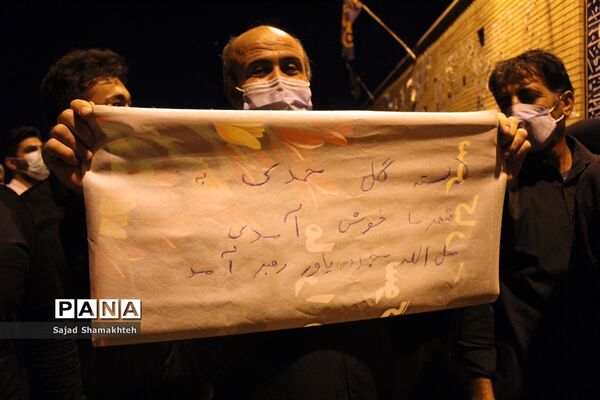 دسته گل محمدی به
شهر ما خوش آمدی
صل الله مجددی یاور رهبر آمد
PANA
Sajad Shamakhteh